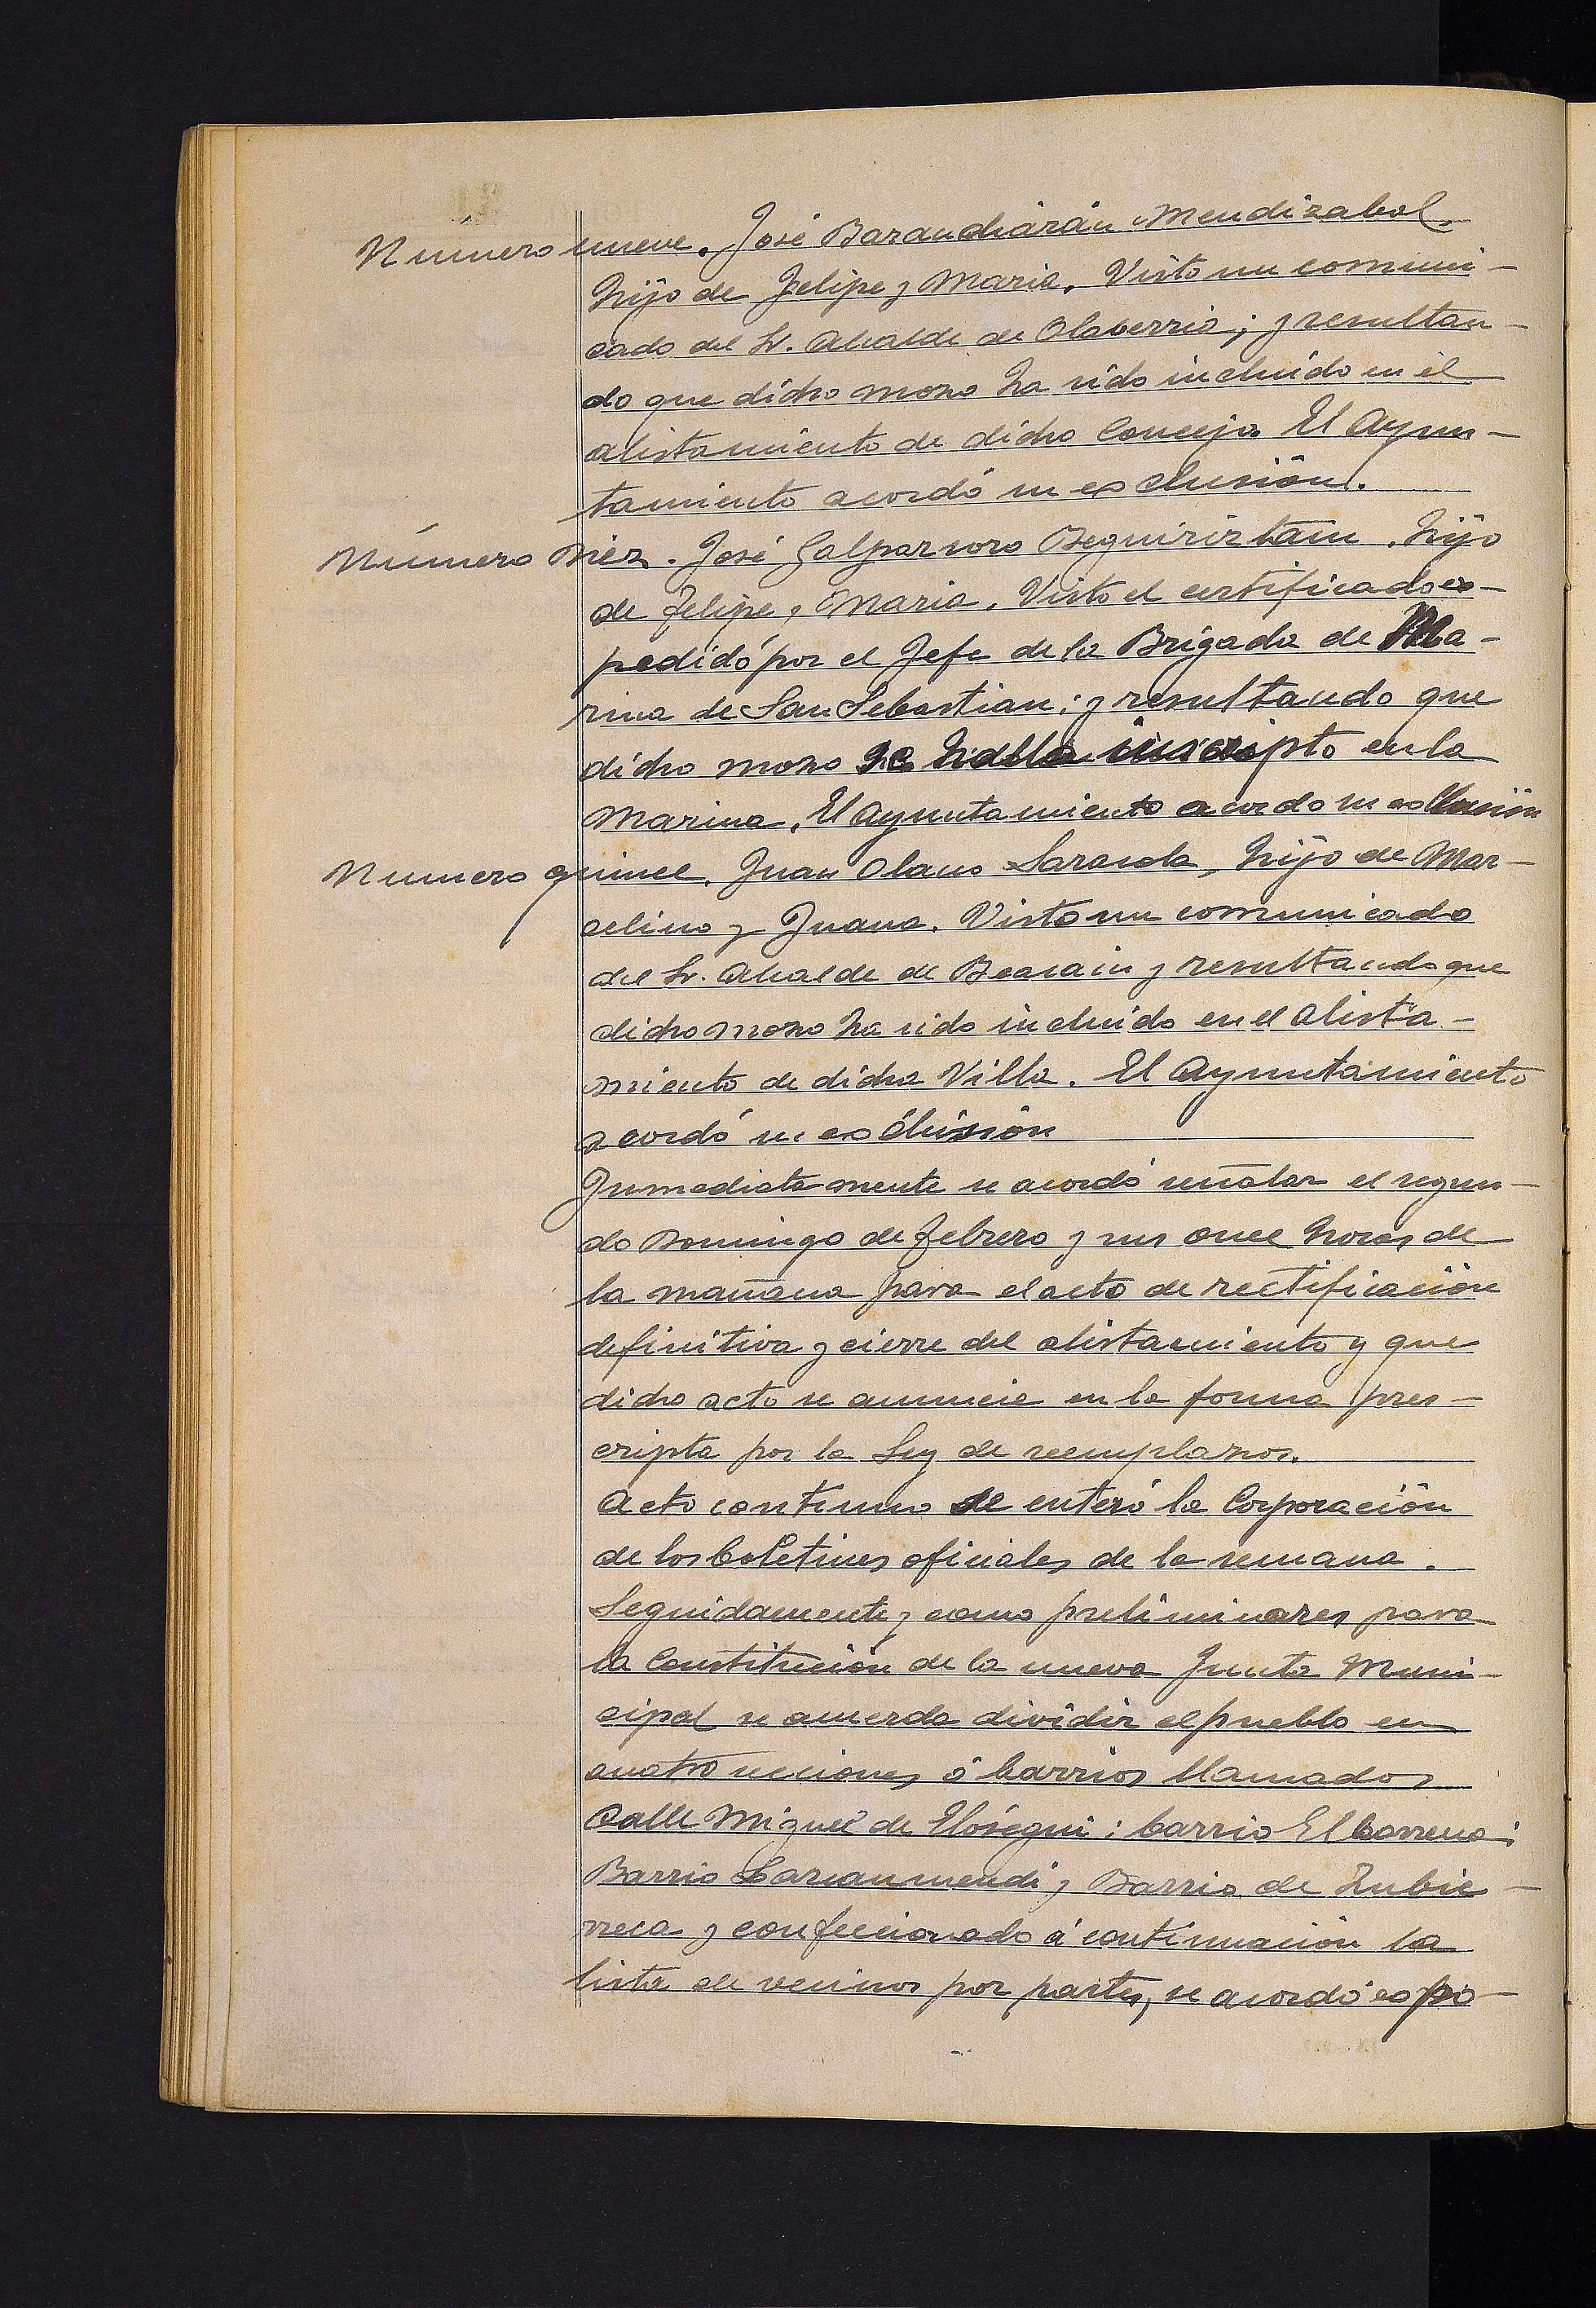 Número nueve. José Barandiarán Mendizabal.
hijo de Felipe y Maria. Visto un comuni-
cado del Sr. Alcalde de Olaberria; y resultan-
do que dicho mozo ha sido incluido en el
alistamiento de dicho Concejo. El Ayun-
tamiento acordó su exclusión.
Número Diez. José Galparsoro Beguiristain. hijo
de Felipe y Maria. Visto el certificado ex-
pedidó por el Jefe de la Brigada de Ma-
rina de San Sebastian; y resultando que
dicho mozo se halla inscripto en la
Marina, El Ayuntamiento acordo su exclusión
Numero quince. Juan Olano Sarasola, hijo de Mar-
celino y Juana. Visto un comunicado
del Sr. Alcalde de Beasain y resultando que
dicho mozo ha sido incluido en el alista-
miento de dicha Villa. El Ayuntamiento
acordó su exclusión
Inmediatamente se acordó señalar el segun-
do Domingo de Febrero y sus once horas de
la mañana para el acto de rectificación
definitiva y cierre del alistamiento y que
dicho acto se anuncie en la forma pres-
cripta por la Ley de reemplazos.
Acto continuo se enteró la Corporación
de los boletines oficiales de la semana.
Seguidamente y como preliminares para
la Constitución de la nueva Junta Muni-
cipal se acuerda dividir el pueblo en
cuatro secciones ó barrios llamados
Calle Miguel de Elósegui; barrio Elbarrena;
Barrio Larraunmendi y Barrio de Zubie-
rreca y confeccionado á continuación la
lista de vecinos por partes, se acordó expo-